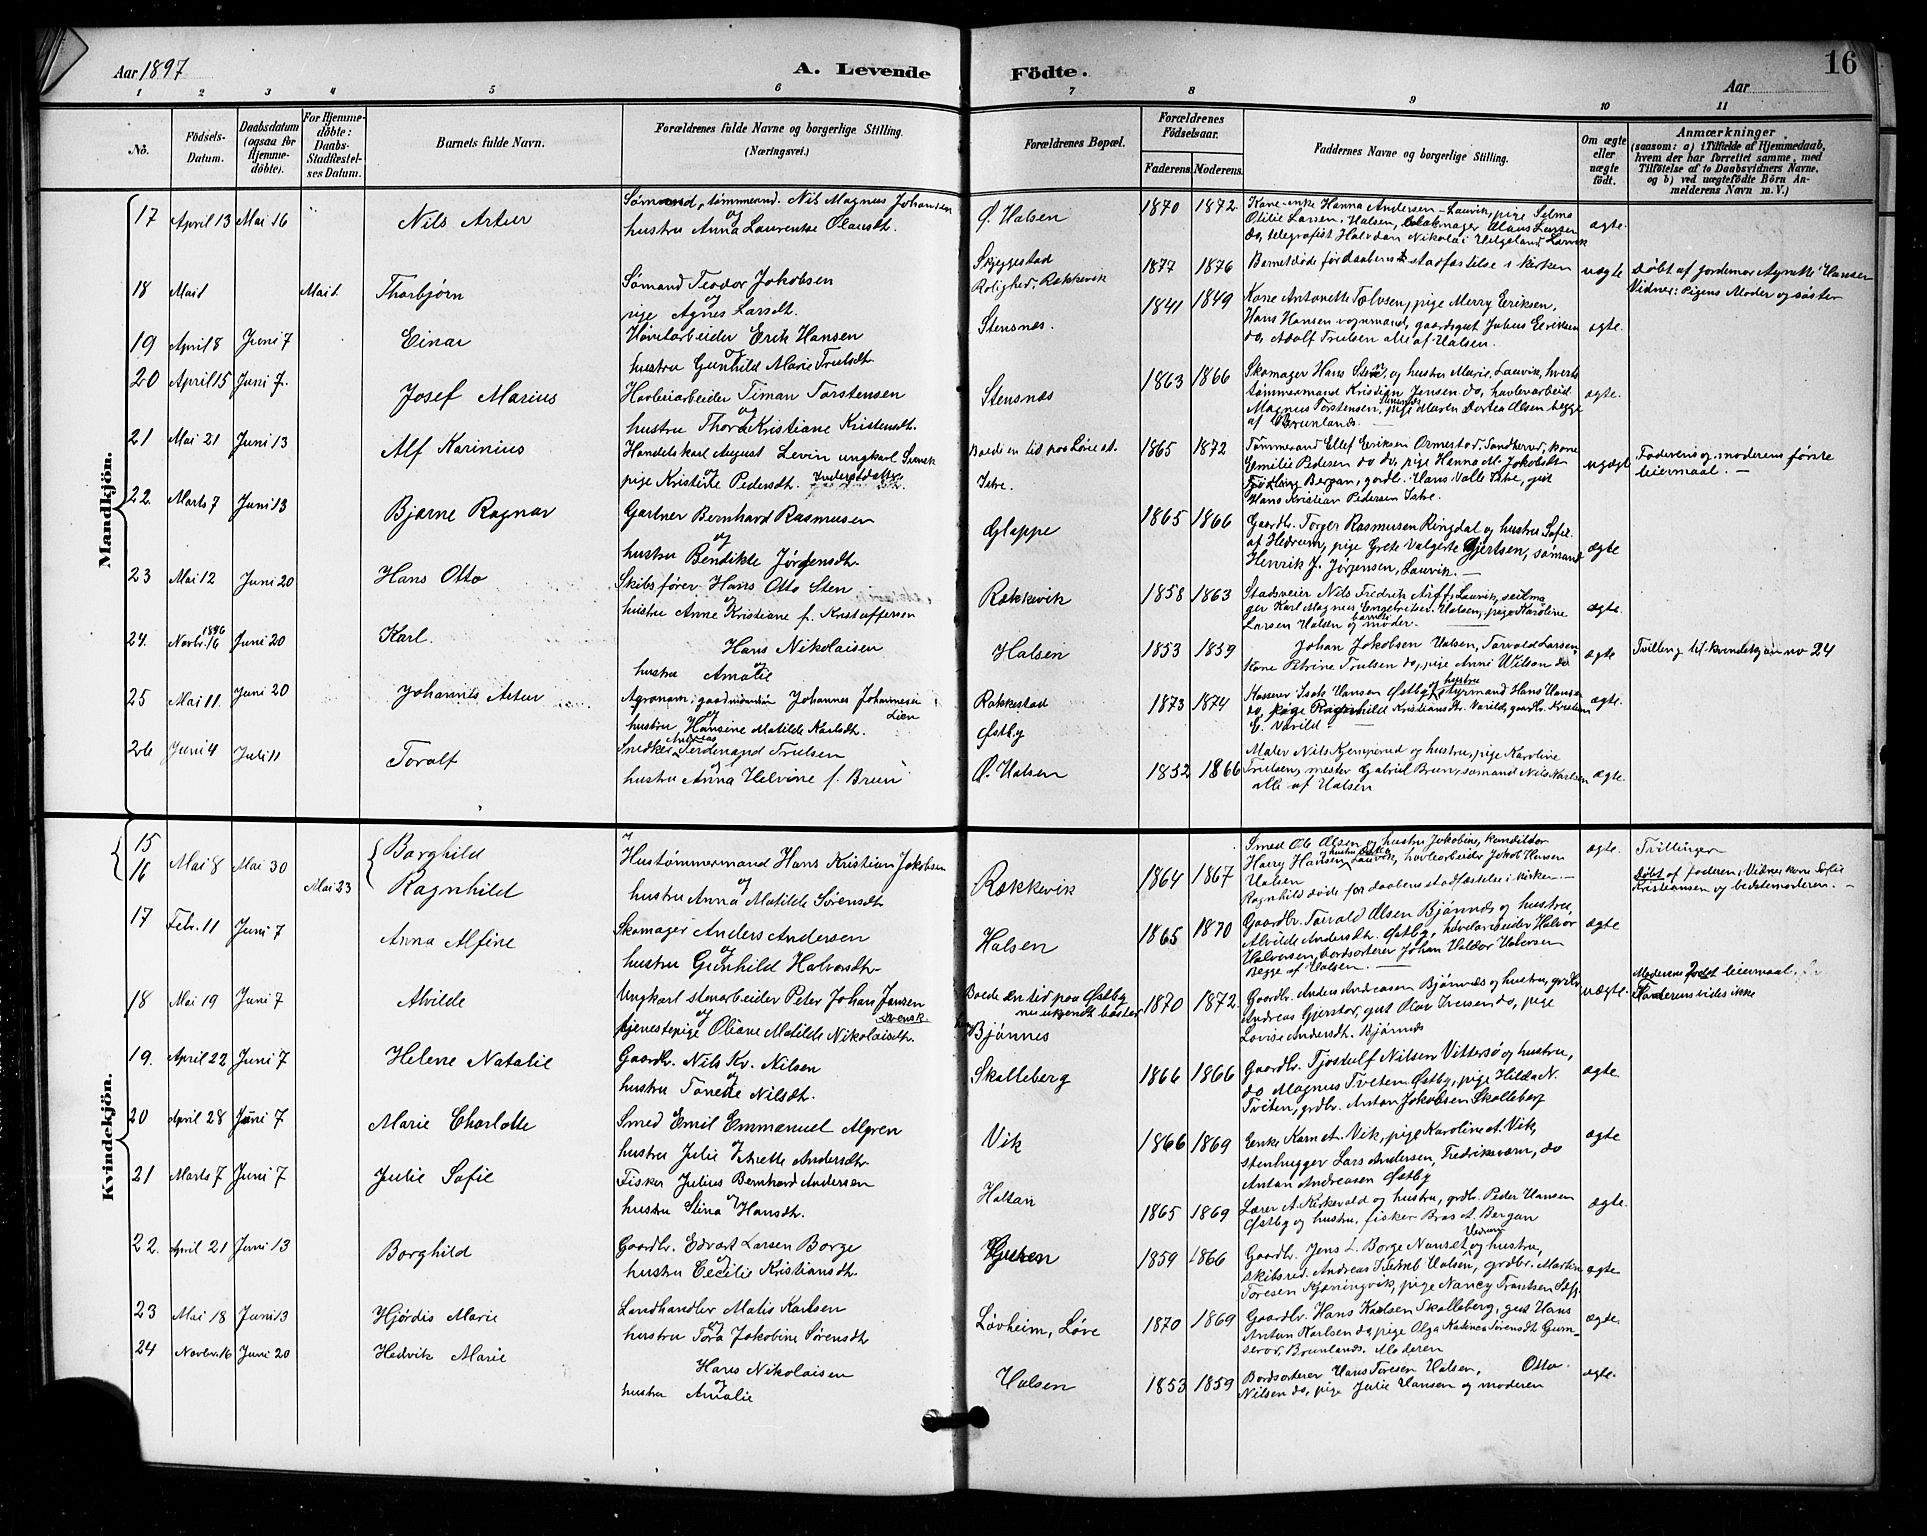 Aar 1897
A. Levende Födte.
Aar
16
1 2 3 4 5 6 7 8 9 10 11
No.
Födsels-Datum.
Daabsdatum (ogsaa for Hjemme-döbte).
For Hjemme-döbte: Daabs-Stadfæstel-ses Datum.
Barnets fulde Navn.
Forældrenes fulde Navne og borgerlige Stilling. (Næringsvei.)
Forældrenes Bopæl.
Forældrenes Födselsaar.
Faderens. Moderens.
Faddernes Navne og borgerlige Stilling.
Om ægte eller uægte födt.
Anmærkninger
(saasom: a) i Tilfælde af Hjemmedaab, hvem der har forrettet samme, med Tilföielse af to Daabsvidners Navne, og b) ved uægtefödte Börn Anmelderens Navn m. V.)
Mandkjön.
17 April 13 Mai 16 Nils Artur
Sømand, tømmermd. Nils Magnus Johansen
og
hustru Anna Laurentse Olausdt.
Ø. Halsen 1870 1872
Kone-enke Hanna Andersen-Laurvik, pige Selma
Otilie Larsen, Halsen, Olaus Larsen
do, telegrafist Halvdan Nikolai Helgeland Larvik
ægte.
18 Mai 1 Mai 1. Thorbjørn
Sømand Teodor Jakobsen
og
pige Agnes Larsdt.
Skjeggestad
Rolighed, Rækkevik
1877 1876
Barnet døde før daabens stadfæstelse i kirken
uægte
Døbt af jordemor Agnette Hansen
Vidner: Pigens Moder og søster
19 April 8 Juni 7 Einar
Høvlarbeider Erik Hansen
og
hustru Gunhild Marie Trulsdt.
Stensnæs. 1841 1849
Kone Antonette Tælvsen, pige Merry Eriksen,
Hans Hansen vognmand, gaardsgut Julius Eriksen
do, Adolf Trulsen alle af Halsen.
ægte.
20 April 15 Juni 7. Josef Marius
Høvleriarbeider Timan Torstensen
og
hustru Thora Kristiane Kristensdt.
Stensnæs 1863 1866
Skomager Hans Steen, og hustru Marie, Laurvik,
tømmermand Kristian Jensen do, høvlerarbeid
Magnus Torstensen, Stensnæs, pige Maren Dortea Olsen begge
af Brunlands.
ægte.
21 Mai 21 Juni 13 Alf Karinius
Handelskarl August Levin ungkarl Svensk
og
pige Kristine Pedersdt.
Boede en tid paa Løve st.
Istre.
1865 1872
Tømmermand Ellef Eriksen Ormestad, Sandherred, kone
Emilie Pedersen do do, pige Hanna M. Jakobsdt
Bergan, gbrd. Hans Valle Istre, gut
Hans Kristian Pedersen Istre.
uægte
Faderens og moderens første
leiermaal. -
22. Marts 7 Juni 13 Bjarne Ragnar
Gartner Bernhard Rasmusen
og
hustru Bendikte Jørgensdt.
Gloppe 1865 1866
Gaardbr. Torger Rasmussen Ringdal og hustru Sofie
af Hedrum, pige Grete Valgerte Gjertsen, sømand
Henrik J. Jørgensen, Laurvik. -
ægte
23 Mai 12 Juni 20 Hans Otto
Skibsfører Hans Otto Sten
og
hustru Anne Kristiane f. Kristoffersen
Rækkevik 1858 1863
Stadsveier Nils Fredrik Arff, Laurvik, seilma
ger Karl Magnus Engebretsen Halsen, pige Karoline
Larsen Halsen og barnets moder.
ægte.
24. Novbr. 16 1896 Juni 20 Karl.
Hans Nikolaisen
og
hustru Amalie
Halsen 1853 1859
Johan Jakobsen Halsen, Torvald Larsen
Kone Petrine Trulsen do, pige Anni Wilson do
ægte
Tvilling til kvindekjøn no 24
25 Mai 11. Juni 20 Johannes Artur
Agronom, Johannes Johannesen
Lien
og
hustru Hansine Matilde Karlsdt.
Rakkestad
Østby
1873 1874
Kasserer Isak Hansen Østby og hustru, styrmand Hans Hansen
do, pige Ragnhild Kristiansdt. Varild, gaardbr. Kristian
E. Varild.
ægte.
26 Juni 4 Juli 11 Toralf
Snedker Andreas Ferdinand Trulsen
og
hustru Anna Helvine f. Brun
Ø. Halsen 1852 1866
Maler Nils Kjemperud og hustru, pige Karoline
Trulsen, mester Gabriel Brun, sømand Nils Karlsen
alle af Halsen
ægte.
Kvindekjön.
15
16 Mai 8 Mai 30 Borghild
Mai 23 Ragnhild
Hustømmermand Hans Kristian Jakobsen
og
hustru Anna Matilde Sørensdt
Rækkevik 1864 1867
Smed Ole Olsen og hustru Jakobine, konditor
Harry Hansen og hustru Laurvik, høvlearbeider Jakob Hansen
Halsen
Ragnhild døde før daabens stadfæstelse i kirken. -
ægte.
Tvillinger
Døbt af faderen; Vidner kone Sofie
Kristiansen og bedstemoderen. -
17 Febr. 11 Juni 7 Anna Alfine
Skomager Anders Andersen
og
hustru Gunhild Halvorsdt.
Halsen 1865 1870
Gaardbr. Torvald Olsen Bjønnes og hustru,
Alvilde Andersdt. Østby, høvelarbeider Halvor
Halvorsen, bordsorterer Johan Valdor Halvorsen
Begge af Halsen.
ægte
18 Mai 19 Juni 7 Alvilde
Ungkarl stenarbeider Peter Johan Jansen
svensk.
og
tjenestepige Oliane Matilde Nikolaisdt.
Boede en tid paa Østby
nu ukjendt bosted
Bjønnes
1870 1872
Gaardbr. Anders Andreasen Bjønnes og hustru, grdbr
Andreas Gjerstor, gut Olav Iversen do, pige
Lovise Andersdt. Bjønnes
uægte.
Moderens 2det leiermaal,
Faderens vides ikke
19. April 22 Juni 7 Helene Natalie
Gaardbr. Nils Kr. Nilsen
og
hustru Tonette Nilsdt.
Skalleberg 1866 1866
Gaardbr. Tjostulf Nilsen Vittersø og hustru,
do Magnus Tveten Østby, pige Hilda N.
Tveten, grdbr. Anton Jakobsen Skalleberg
ægte.
20 April 28 Juni 7 Marie Charlotte
Smed Emil Emmanuel Algren
og
hustru Julie Anette Andersdt.
Vik 1866 1869
Enke Karn A. Vik, pige Karoline A. Vik,
stenhugger Lars Andersen, Fredriksværn, do
Anton Andreasen Østby
ægte
21 Marts 7 Juni 7 Julie Sofie
Fisker Julius Bernhard Andersen
og
hustru Stina Hansdt.
Haltan 1865 1869
Lærer A. Kirkevold og hustru, grdbr. Peder Hansen
Østby og hustru, fisker Bras A. Bergan
ægte.
22. April 21 Juni 13 Borghild
Gaardbr. Edvart Larsen Borge
og
hustru Cecilie Kristiansdt.
1859 1866
Gaardbr. Jens L. Borge Nanset Hedrum og hustru,
skibsred. Andreas Halsen, grdbr. Martin
Toresen Kjønningvik, pige Nancy Frantsen
ægte
23 Mai 18 Juni 13 Hjørdis Marie
Landhandler Matis Karlsen
og
hustru Tora Jakobine Sørensdt.
Løvheim, Løve 1870 1869
Gaardbr. Hans Karlsen Skalleberg, gut Hans
Anton Karlsen do, pige Olga Katinca Sørensdt Gum-
serød, Brunlands. Moderen
ægte.
24 Novbr. 16 Juni 20 Hedvik Marie
Hans Nikolaisen
og
hustru Amalie
Halsen 1853 1859
Bordsorterer Hans Toresen Halsen, Otto
Nilsen do, pige Julie Hansen og moderen
ægte.